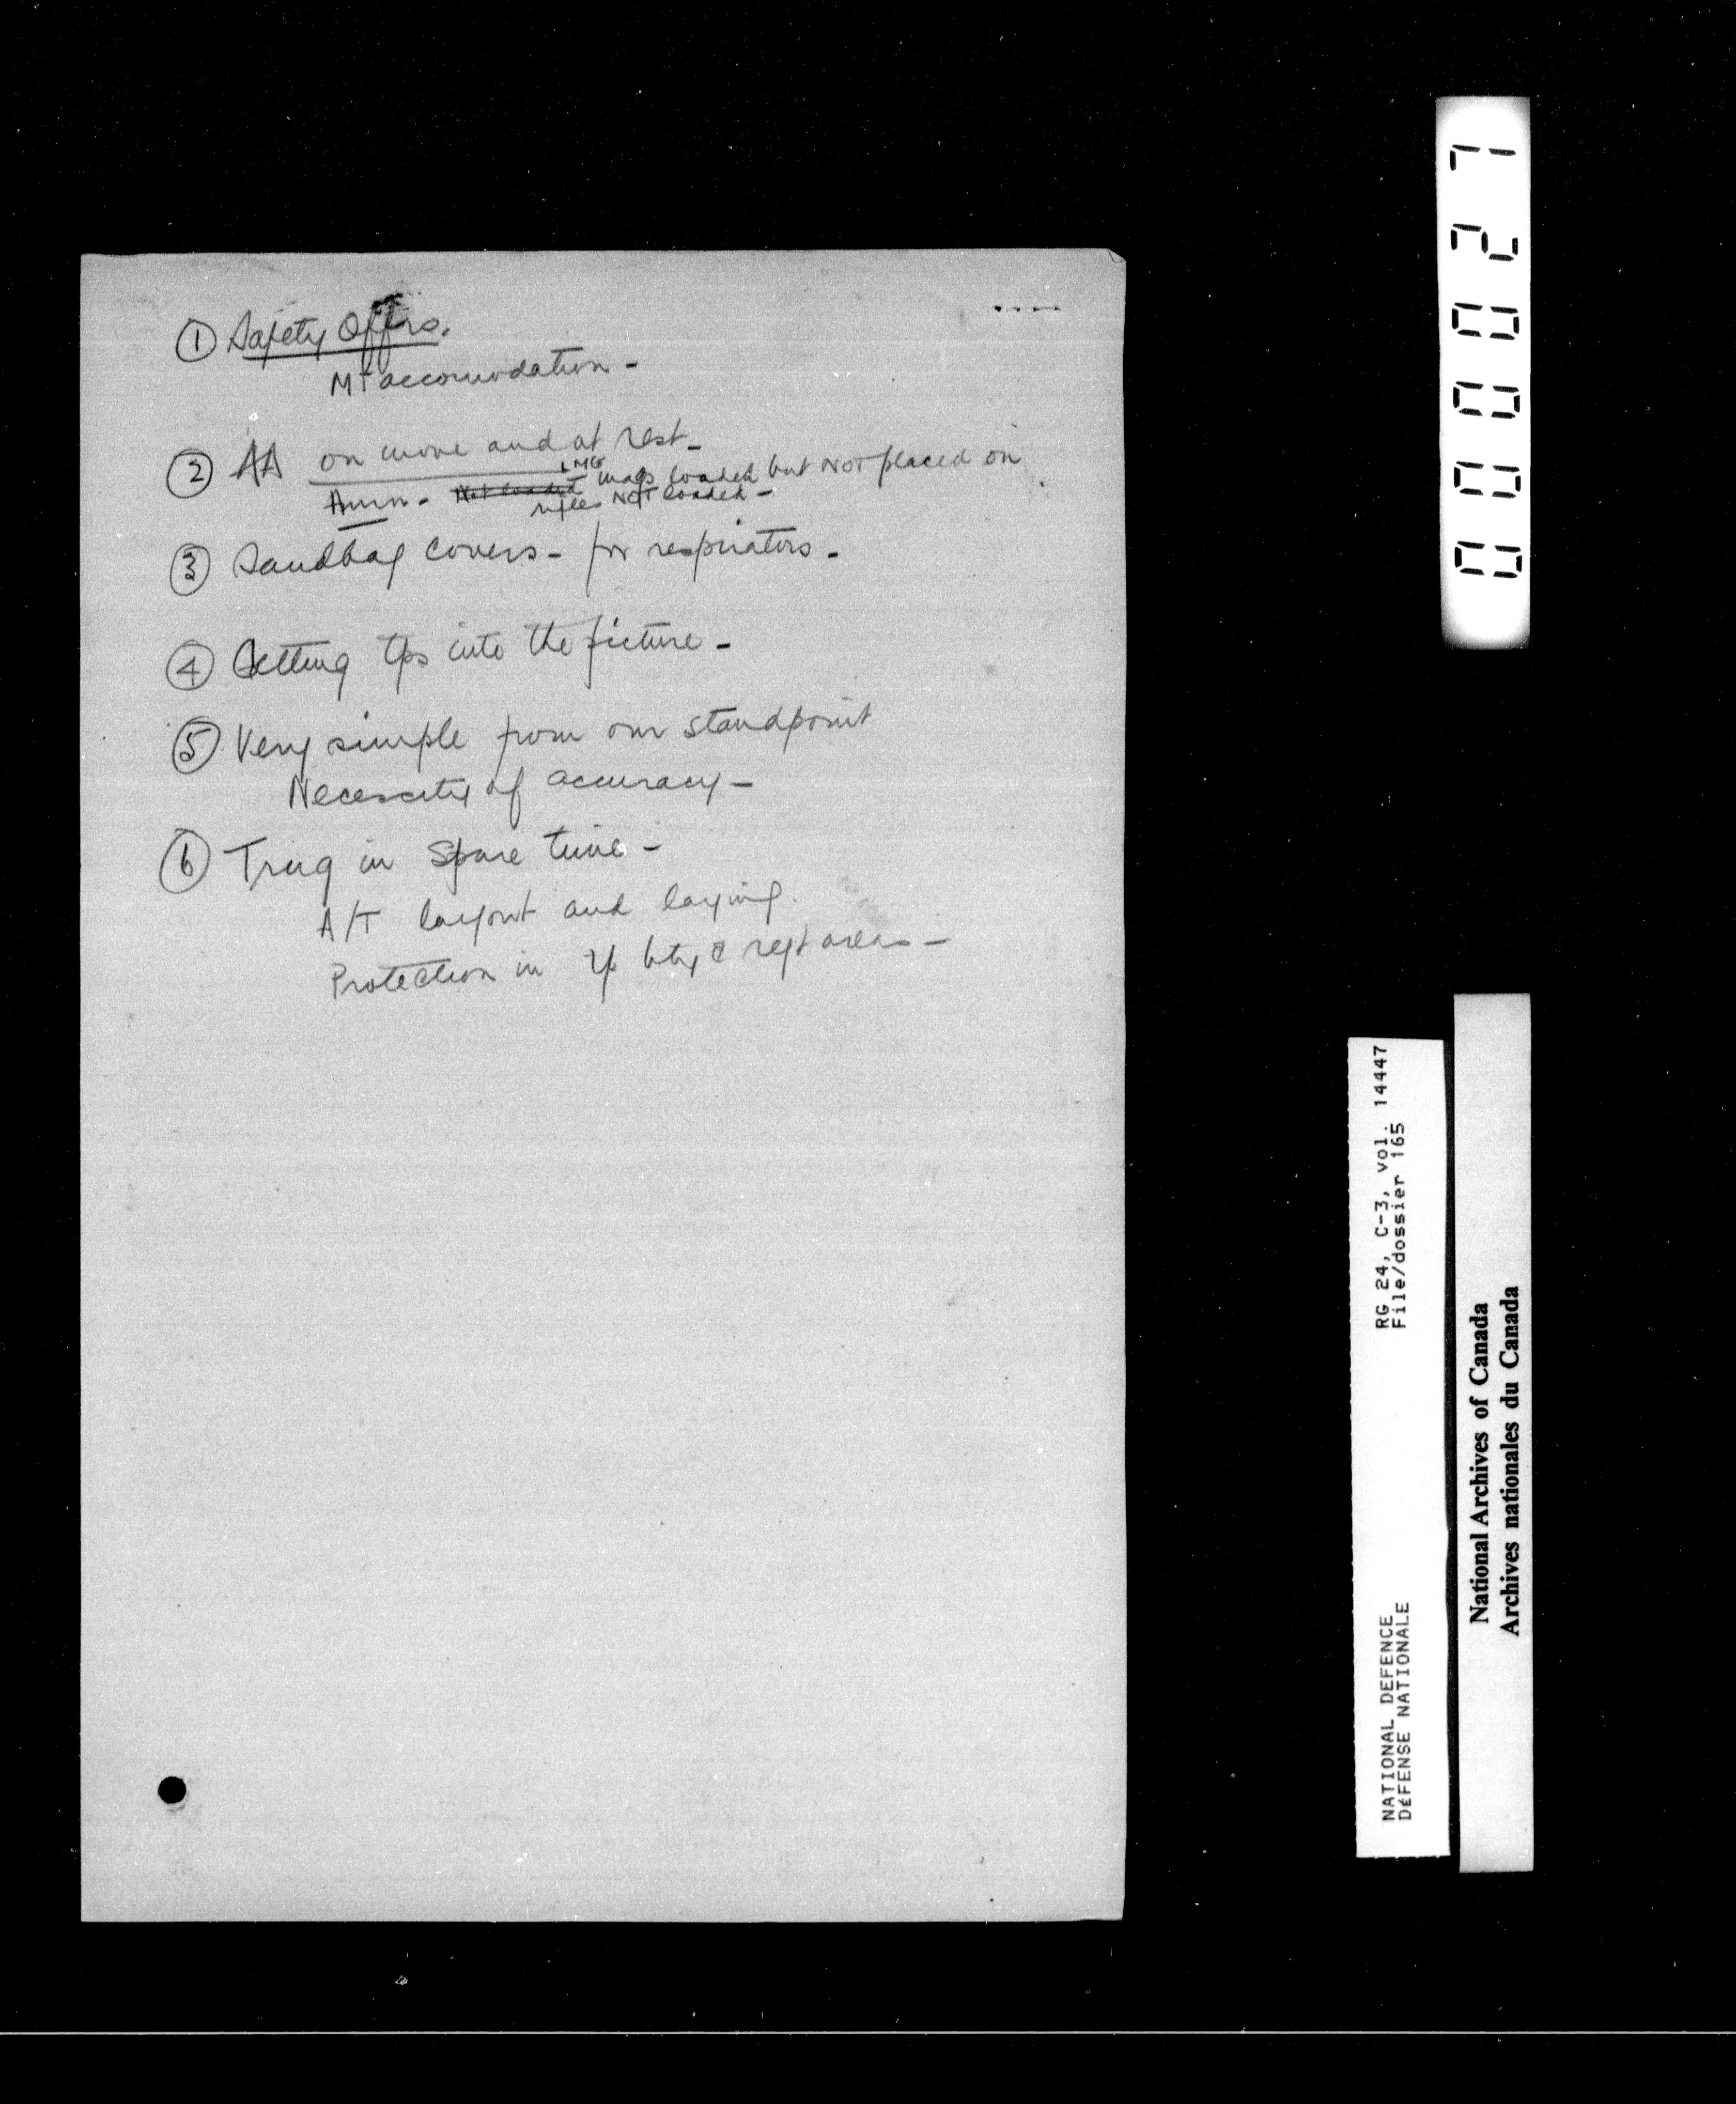 ① Safety Offrs.
MT accomodation -
② AA on move and at rest -
Amn - Not loaded LMG mags loaded but NOT placed on
rifles NOT loaded -
③ Sandbag covers - for respirators -
④ Getting tps into the picture -
⑤ Very simple from our standpoint
Necessity of accuracy -
⑥ Trng in spare time -
A/T layout and laying.
Protection in bty & regt areas -
000027
RG 24, C-3, vol. 14447
File/dossier 165
NATIONAL DEFENCE
DÉFENSE NATIONALE
National Archives of Canada
Archives nationales du Canada